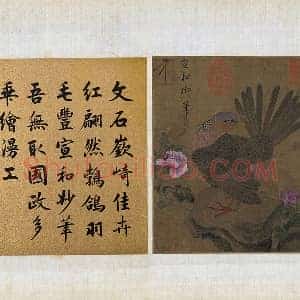 文石嶔崎佳卉
紅翩然鵓鴿羽
毛豐宣和妙筆
吾無取國政多
乖繪
工
宣和御筆